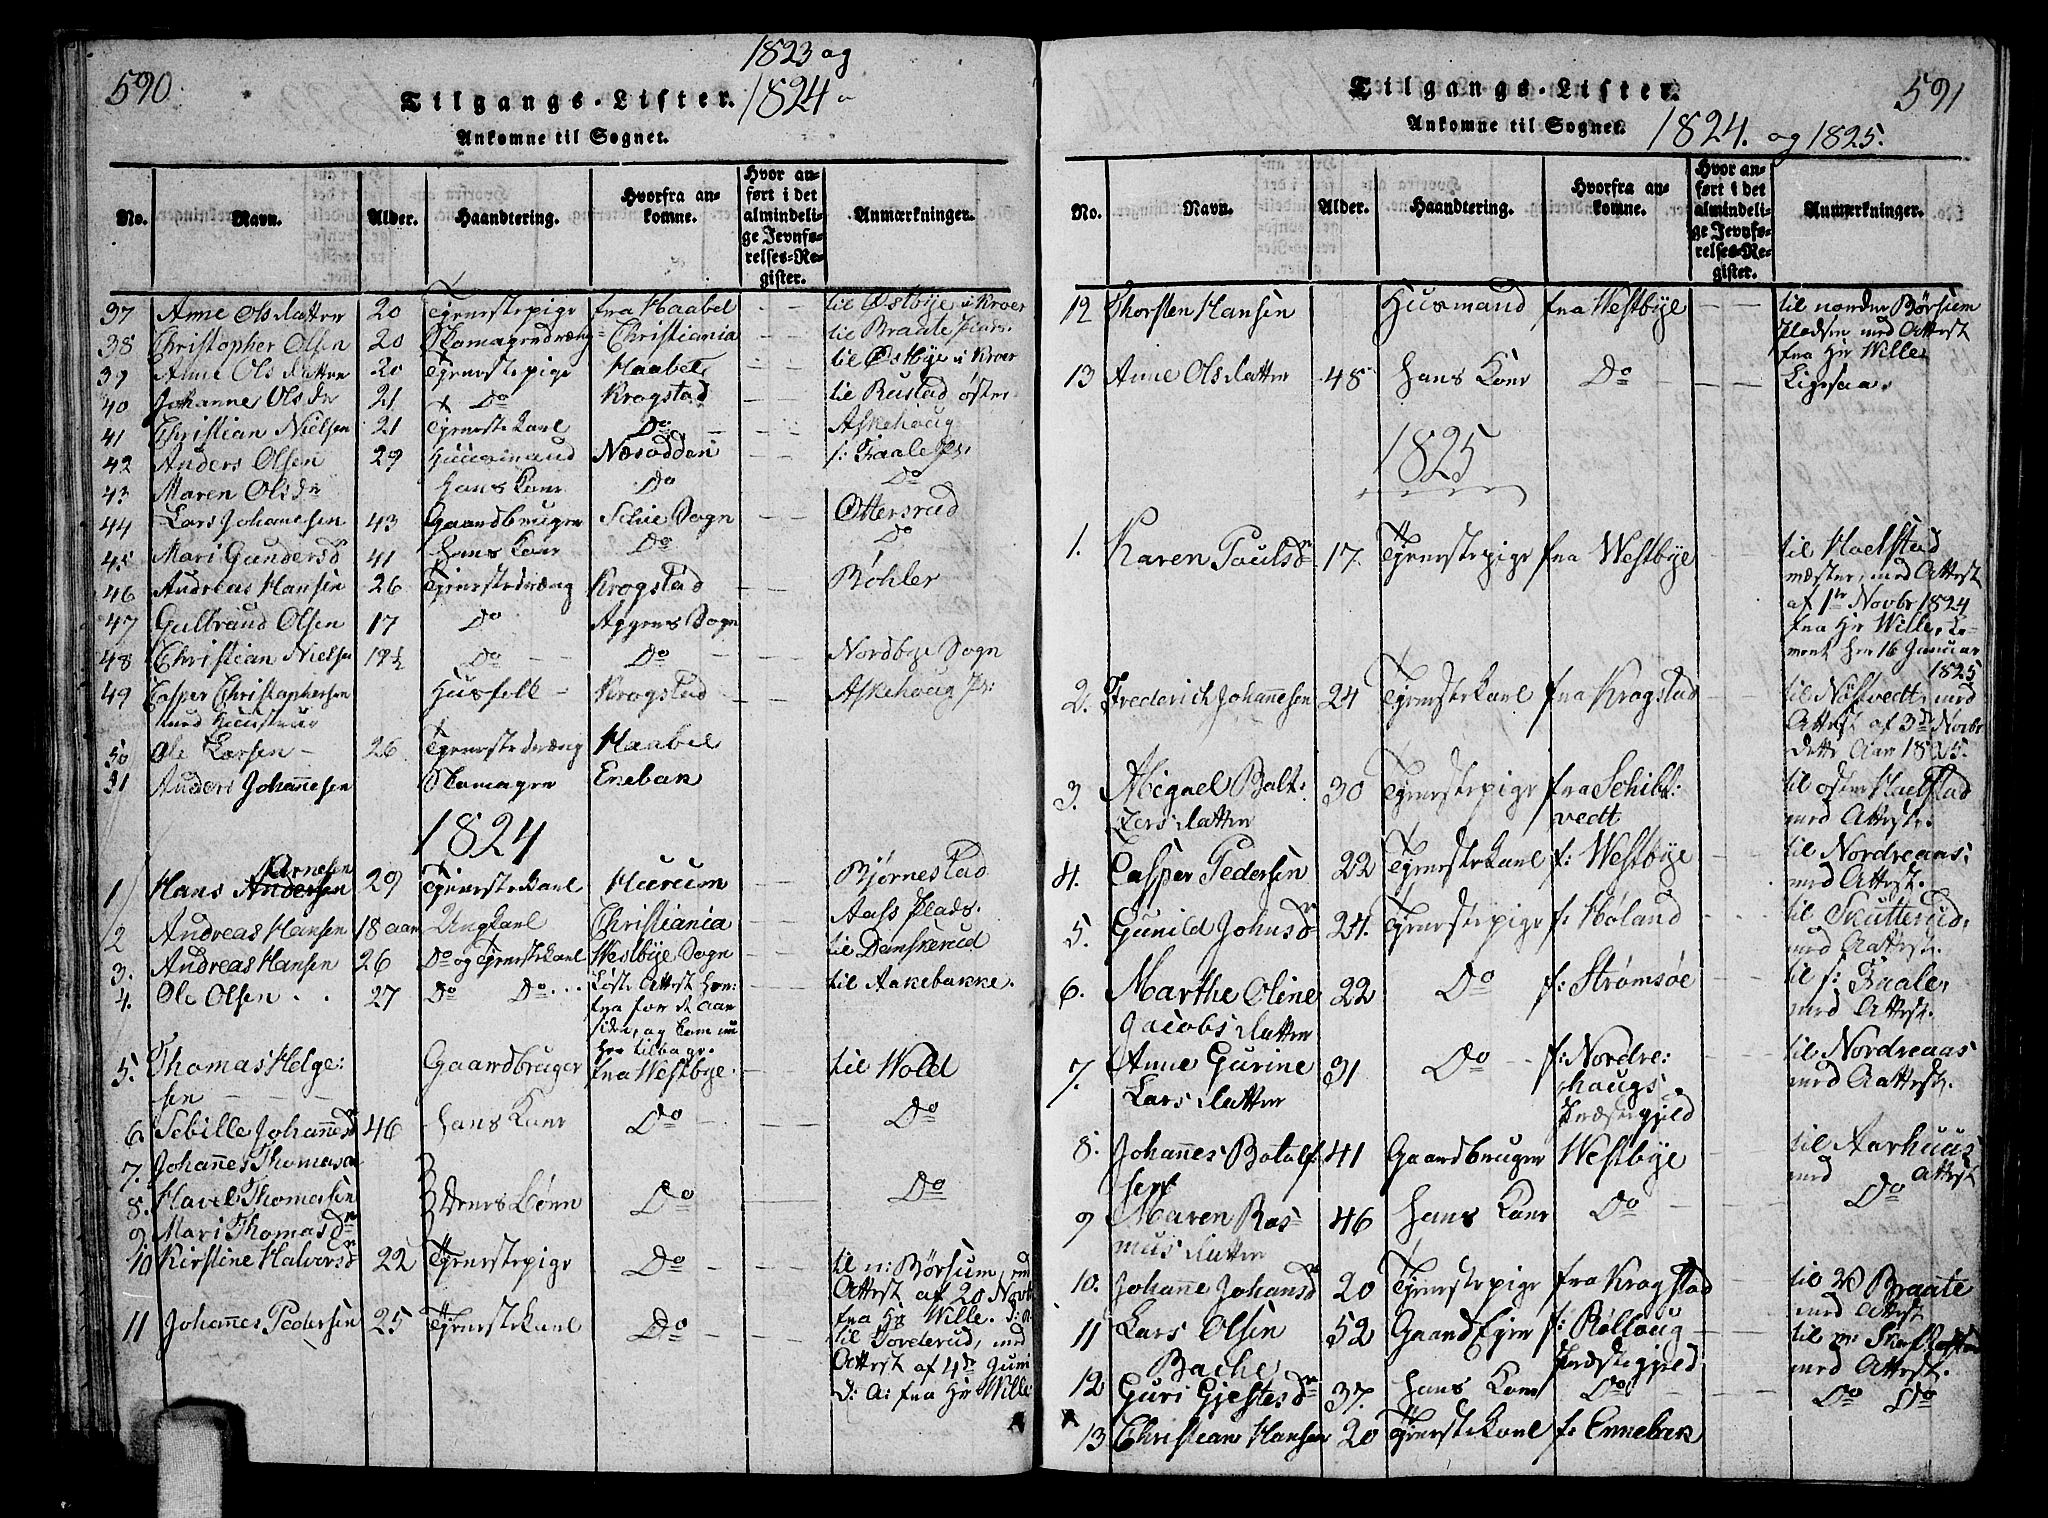 590.
1823 og
Tilgangs-Lister. 1824
Ankomne til Sognet.
No. Navn. Alder. Haandtering. Hvorfra ankomne. Hvor anført i det almindelige Jevnførelses-Register. Anmærkninger.
37 Anne Olsdatter 20 Tjenestepige fra Haabel - - til Østbye i Kroer
38 Christopher Olsen 20 Skomagerdræng Christiania til Braate Plads.
39 Anne Olsdatter 20 Tjenestepige Haabel til Østbye i Kroer
40 Johanne Olsdr 21 Do Krogstad til Rustad øster
41 Christian Nielsen 21 Tjenestekarl Do - - - Askehoug
42 Anders Olsen 29 Huusmand Næsodden - - s: Fraale Ps:
43 Maren Olsdr hans Kone Do Do
44 Lars Johannesen 43 Gaardbruger Schie Sogn - - Ottersrud
45 Mari Gundersdr 41 hans Kone Do - - Do
46 Andreas Hansen 26 Tjenestedræng Krogstad - - Bøhler
47 Gulbrand Olsen 17 Do Aggers Sogn
48 Christian Nielsen 19½ Do - - Do - - - Nordbye Sogn
49 Casper Christophersen Husfolk - Krogstad - - Askehoug Ps:
med Huustrue
50 Ole Larsen - 26 Tjenestedræng Haabel
51 Anders Johannesen Skomager Enebak
1824
Arnesen
1 Hans Andersen 29 Tjenestekarl Hurum Bjørnestad
2 Andreas Hansen 18 aar Ungkarl Christiania Aass Plads.
3. Andreas Hansen 26 Do og Tjenestekarl Westbye Sogn til Danskerud
4. Ole Olsen . . 27 Do Do . . . Løste Attest her: til Aakebakke.
fra for et Aar
siden, og kom nu
her tilbage.
5. Thomas Helge: Gaardbruger fra Westbye. - - til Wold
sen - - -
6. Sebille Johannesdr 46 hans Kone Do - - - Do
7. Johannes Thomasen
8. Havel Thomasen Deres Børn Do - - Do
9 Mari Thomasdr
10 Kirstine Halvorsdr 22 Tjenestepige Do - - - til n: Børsum, med
Attest af 20 Novbr
fra Hr Wille.
11 Johannes Pedersen 25 Tjenestekarl Do - - - til Torderud, med
Attest af 4de Juni
d: A: fra Hr Wille
591
Tilgangs-Lister.
Ankomne til Sognet. 1824. og 1825.
No. Navn. Alder. Haandtering. Hvorfra ankomne. Hvor anført i det almindelige Jevnførelses-Register. Anmærkninger.
12 Thorsten Hansen Husmand fra Westbye - - til nordre Børsum
Pladsen med Attest
fra Hr Wille
13 Anne Olsdatter 48 hans Kone Do - - - Ligesaa.
1825
1. Karen Paulsdr 17. Tjenestepige fra Westbye - - til Haelstad
mæster, med Attest
af 1te Novbr 1824
fra Hr Wille, ko-
ment her 16 Januar
1825
2. Frederich Johannesen 24 Tjenestekarl fra Krogstad - - til Nøstvedt, med
Attest af 3de Novbr
dette Aar 1825.
3. Migael Balt: 30 Tjenestepige fra Schibt: til østre Haelstad
zersdatter vedt med Attest.
4. Casper Pedersen 22 Tjenestekarl f: Westbye - - til Nordreaas
med Attest.
5. Gunild Johnsdr 24. Tjenestepige f: Høland - - til Skutterud,
med Attest.
6. Marthe Oline 22 Do f: Strømsøe til s: Fraale,
Jacobsdatter med Attest.
7. Anne Gurine 31 Do - - f: Nordre: - - til Nordreaas
Larsdatter haugs: med Attest.
Præstegjeld
8. Johannes Botolf 41 Gaardbruger Westbye - - til Aarhuus
sen med Attest
9 Maren Ras= 46 hans Kone Do - - - Do
musdatter
10. Johanne Johansdr 20 Tjenestepige fra Krogstad til Braate
med Attest
11 Lars Olsen 52 Gaard Ejer f: Rollaug - - til
Bache Præstegjeld med Attest.
12 Guri Gjestesdr 37. hans Kone Do - - Do Do
13 Christian Hansen 20 Tjenestekarl f: Ennebak